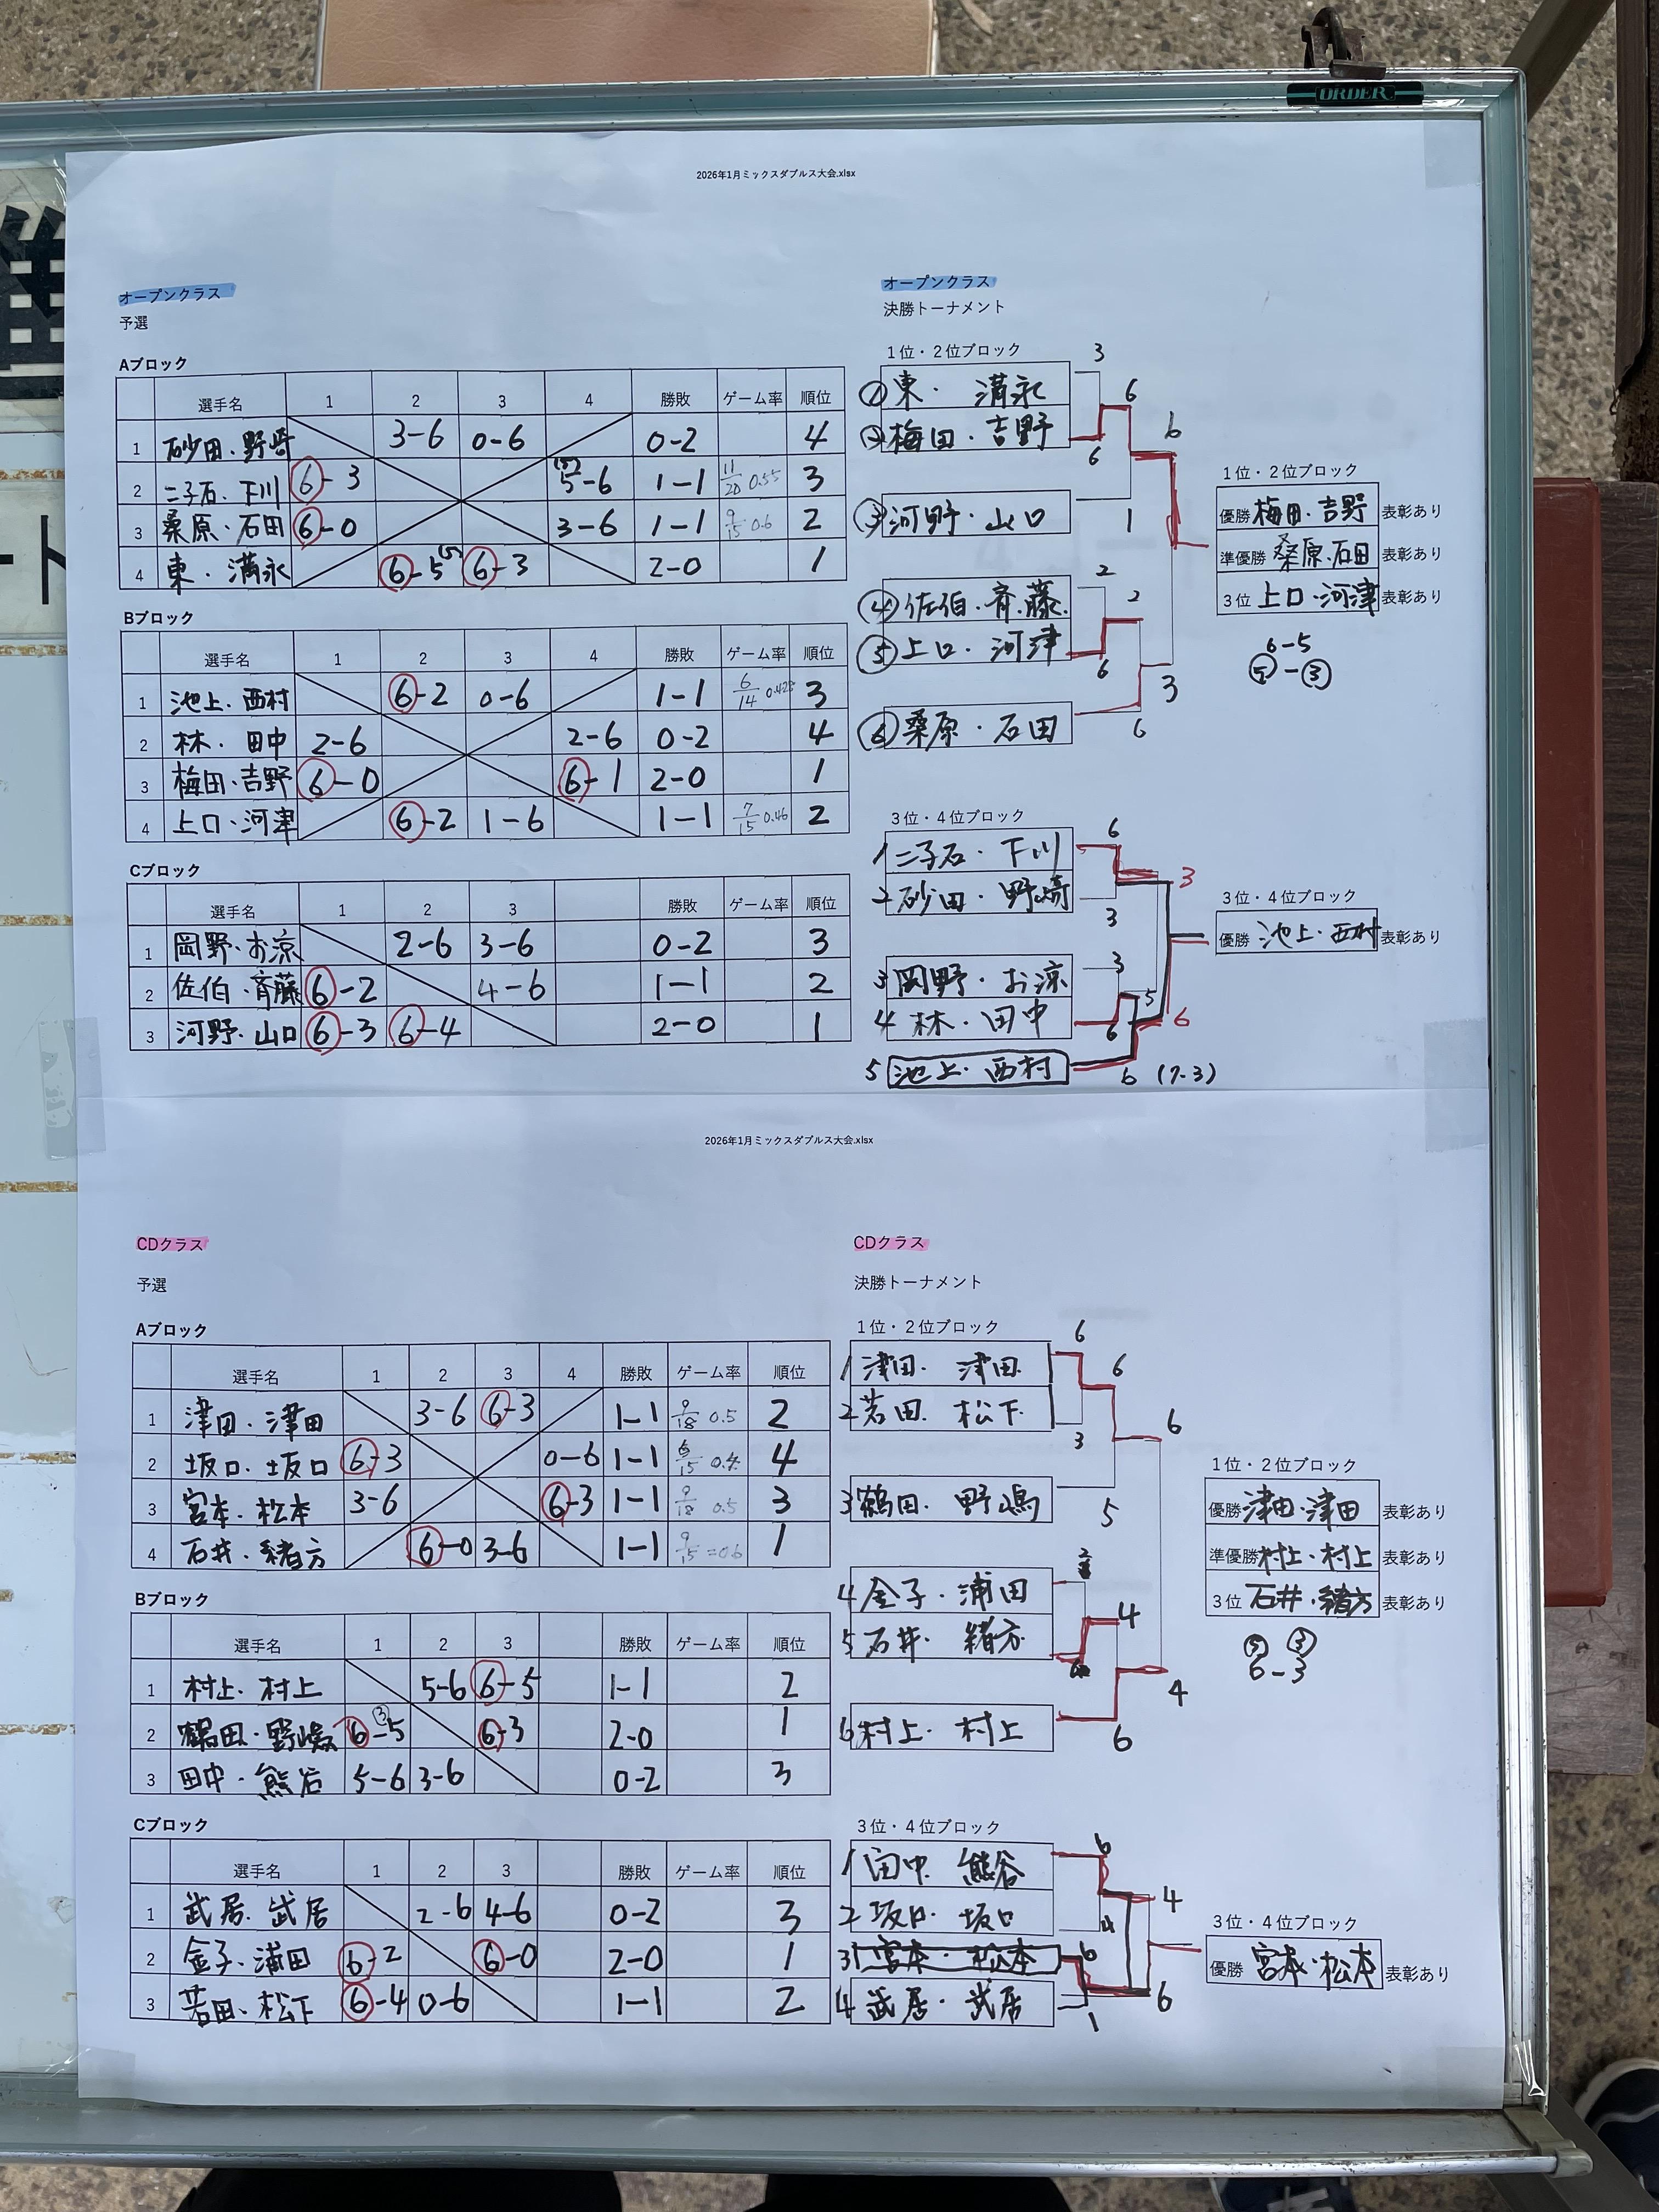 ORDER
2026年1月ミックスダブルス大会.xlsx
オープンクラス
予選
Aブロック
選手名 1 2 3 4 勝敗 ゲーム率 順位
1 砂田・野崎 3-6 0-6 0-2 4
2 二子石・下川 6-3 (5)5-6 1-1 11/20 0.55 3
3 桑原・石田 6-0 3-6 1-1 9/15 0.6 2
4 東・満永 6-5(5) 6-3 2-0 1
Bブロック
選手名 1 2 3 4 勝敗 ゲーム率 順位
1 池上・西村 6-2 0-6 1-1 6/14 0.428 3
2 林・田中 2-6 2-6 0-2 4
3 梅田・吉野 6-0 6-1 2-0 1
4 上口・河津 6-2 1-6 1-1 7/15 0.46 2
Cブロック
選手名 1 2 3 勝敗 ゲーム率 順位
1 岡野・お涼 2-6 3-6 0-2 3
2 佐伯・斉藤 6-2 4-6 1-1 2
3 河野・山口 6-3 6-4 2-0 1
オープンクラス
決勝トーナメント
1位・2位ブロック
① 東・満永 3
② 梅田・吉野 6 6 6
③ 河野・山口 1
④ 佐伯・斉藤 2
⑤ 上口・河津 6 2
⑥ 桑原・石田 6 3
1位・2位ブロック
優勝 梅田・吉野 表彰あり
準優勝 桑原・石田 表彰あり
3位 上口・河津 表彰あり
6-5
⑤-③
3位・4位ブロック
1 二子石・下川 6 3
2 砂田・野崎 3
3 岡野・お涼 3
4 林・田中 6 5
5 池上・西村 6 (7-3) 6
3位・4位ブロック
優勝 池上・西村 表彰あり
2026年1月ミックスダブルス大会.xlsx
CDクラス
予選
Aブロック
選手名 1 2 3 4 勝敗 ゲーム率 順位
1 津田・津田 3-6 6-3 1-1 9/18 0.5 2
2 坂口・坂口 6-3 0-6 1-1 6/15 0.4 4
3 宮本・松本 3-6 6-3 1-1 9/18 0.5 3
4 石井・緒方 6-0 3-6 1-1 9/15=0.6 1
Bブロック
選手名 1 2 3 勝敗 ゲーム率 順位
1 村上・村上 5-6 6-5 1-1 2
2 鶴田・野嶋 6-5③ 6-3 2-0 1
3 田中・熊谷 5-6 3-6 0-2 3
Cブロック
選手名 1 2 3 勝敗 ゲーム率 順位
1 武居・武居 2-6 4-6 0-2 3
2 金子・浦田 6-2 6-0 2-0 1
3 若田・松下 6-4 0-6 1-1 2
CDクラス
決勝トーナメント
1位・2位ブロック
1 津田・津田 6 6 6
2 若田・松下 3
3 鶴田・野嶋 5
4 金子・浦田 2
5 石井・緒方 6 4
6 村上・村上 6 4
1位・2位ブロック
優勝 津田・津田 表彰あり
準優勝 村上・村上 表彰あり
3位 石井・緒方 表彰あり
⑤ ③
6-3
3位・4位ブロック
1 田中・熊谷 6 4
2 坂口・坂口 4
3 宮本・松本 6 6
4 武居・武居 1
3位・4位ブロック
優勝 宮本・松本 表彰あり